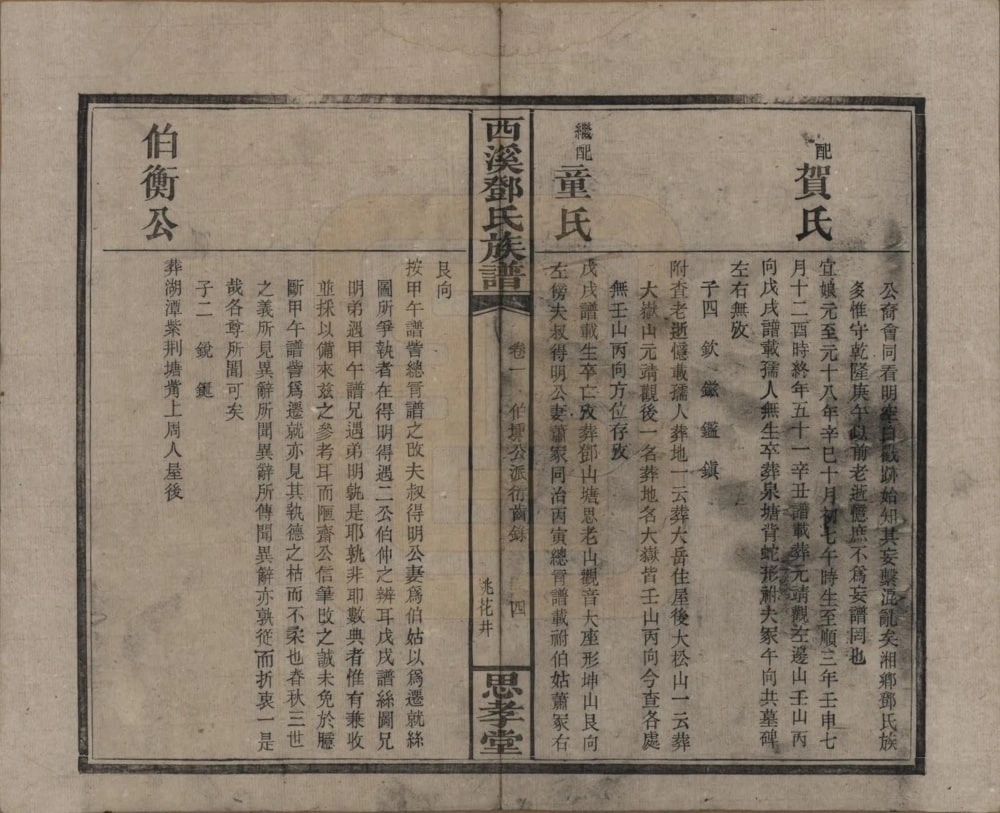 公裔會同看明牢白戳跡始知其妄繫混亂矣湘鄉鄧氏族
多惟守乾隆庚午以前老逝億庶不爲妄譜罔也
配賀氏
宜娘元至元十八年辛巳十月初七午時生至順三年壬申七
月十二酉時終年五十一辛丑譜載葬元靖觀左邊山壬山丙
向戊戌譜載孺人無生卒葬泉塘背蛇形祔夫冢午向共墓碑
左右無攷
子四 欽 鎡 鑑 鎮
附查老逝憶載孺人葬地一云葬大岳住屋後大松山一云葬
大嶽山元靖觀後一名葬地名大嶽皆壬山丙向今查各處
無壬山丙向方位存攷
繼配童氏
戊戌譜載生卒亡攷葬鄧山塘思老山觀音大座形坤山艮向
左傍夫叔得明公妻蕭家同治丙寅總言譜載祔伯姑蕭冢右
西溪鄧氏族譜
卷一 伯壎公派衍齒錄 四
洮花井
思孝堂
艮向
按甲午譜訾總言譜之改夫叔得明公妻爲伯姑以爲遷就絲
圖所爭執者在得明得遇二公伯仲之辨耳戊戌譜絲圖兄
明弟遇甲午譜兄遇弟明孰是耶孰非耶數典者惟有兼收
並採以備來茲之參考耳而陋齋公信筆改之誠未免於臆
斷甲午譜訾爲遷就亦見其執德之枯而不宏也春秋三世
之義所見異辭所聞異辭所傳聞異辭亦孰從而折衷一是
哉各尊所聞可矣
子二 銳 鋋
伯衡公
葬湖潭紫荆塘觜上周人屋後